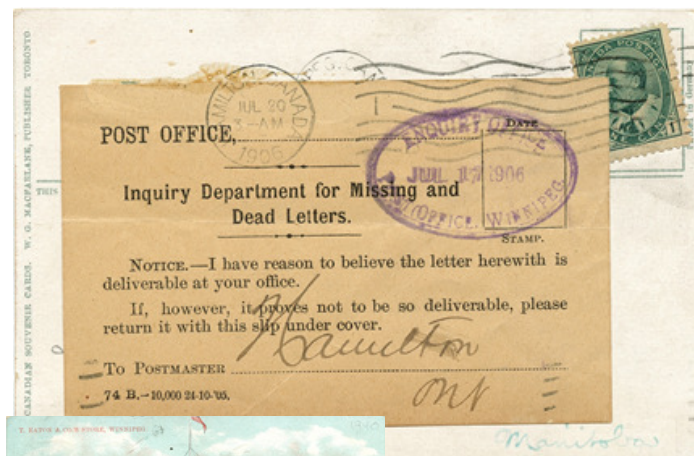 CANADIAN SOUVENIR CARDS. W. G. MACFARLANE, PUBLISHER, TORONTO
THIS
HAMILTON, CANADA
JUL 20
3-AM
1906
PEG. CAN
CANADA POSTAGE
1
POST OFFICE,
ENQUIRY OFFICE
JUL 17 1906
POST OFFICE, WINNIPEG
DATE
STAMP.
Inquiry Department for Missing and
Dead Letters.
NOTICE.—I have reason to believe the letter herewith is
deliverable at your office.
If, however, it proves not to be so deliverable, please
return it with this slip under cover.
Hamilton
To POSTMASTER
Ont
74 B.—10,000 24-10-'05.
T. EATON & CO'S STORE, WINNIPEG
1340
Manitoba